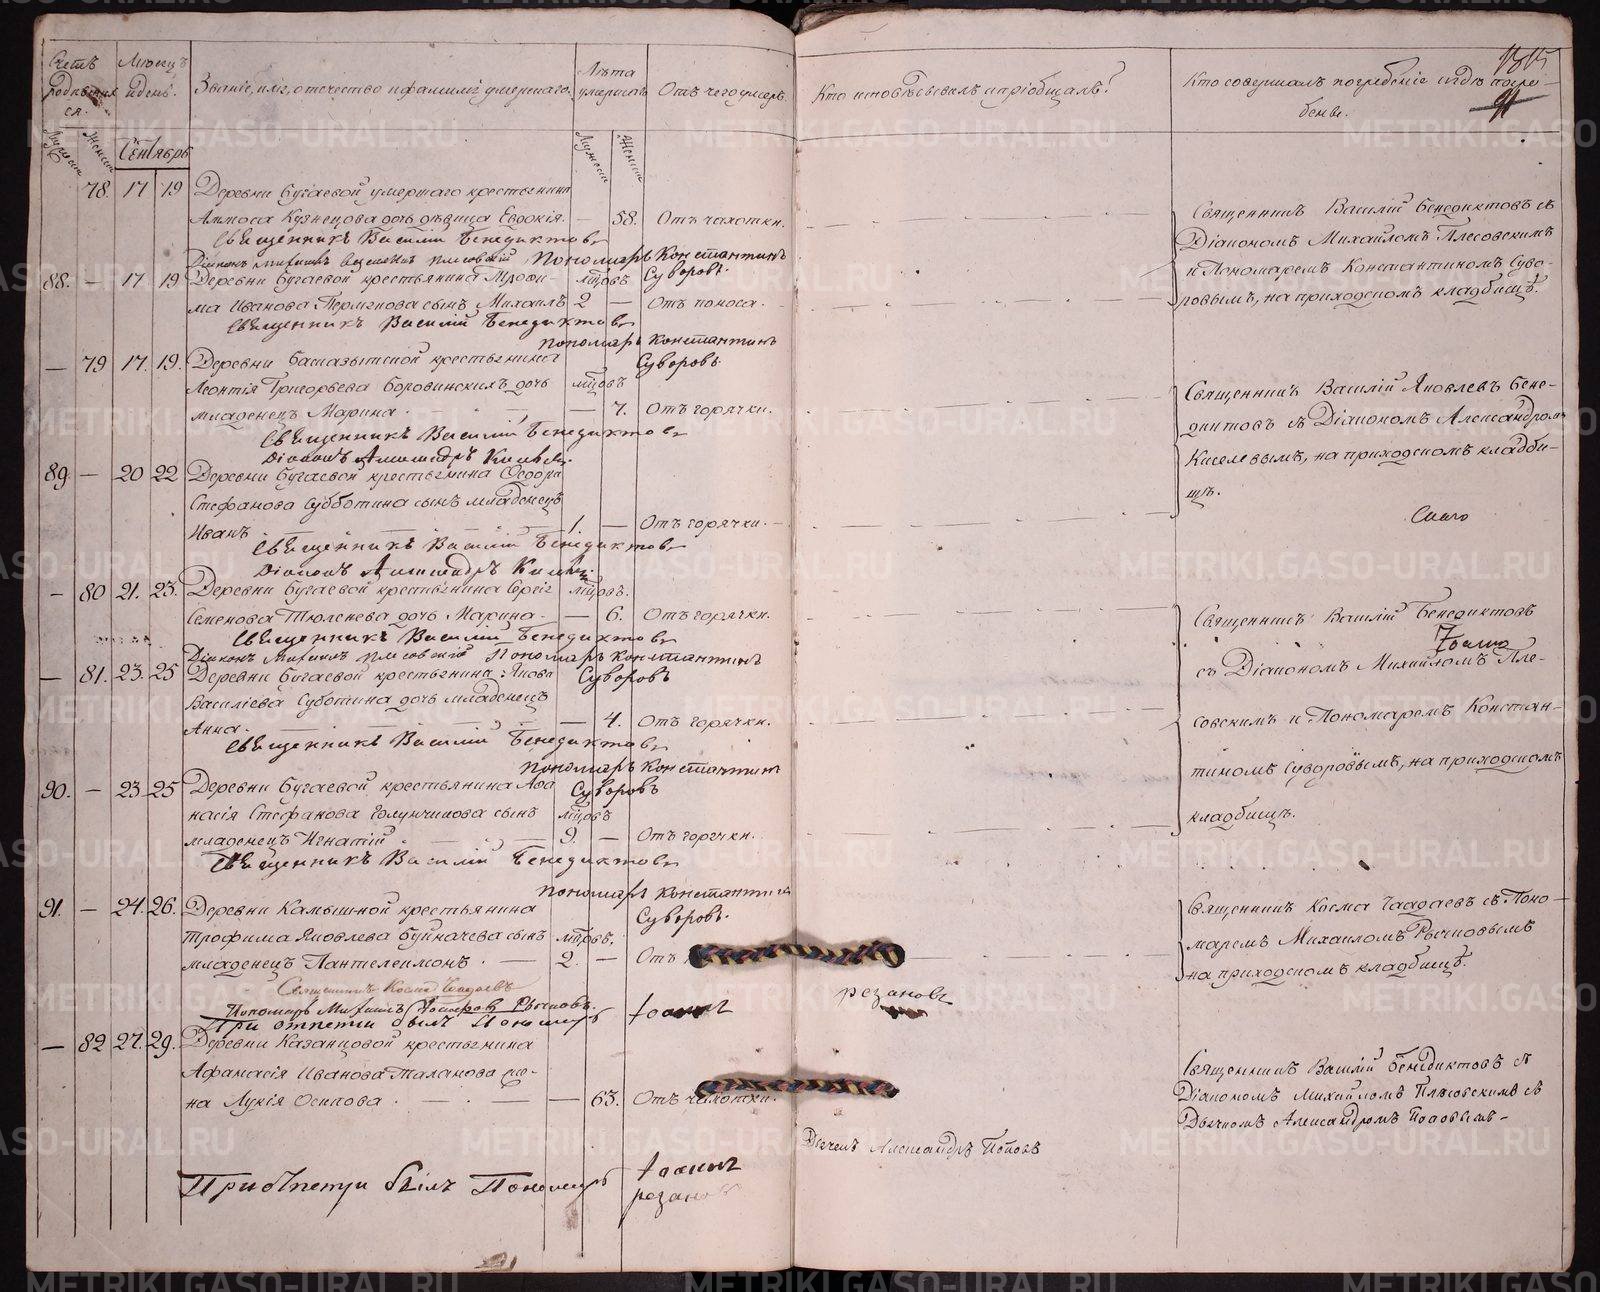 Счетъ
родивших
ся.
Мѣсяцъ
и день.
Званіе, имя, отечество и фамилія умершаго.
Лѣта
умершаго
Отъ чего умеръ.
Кто исповѣдывалъ и пріобщалъ?
Кто совершалъ погребеніе и гдѣ погре-
бены.
Мужеск
Женск
Сентябрь
Мужеск
Женск
78. 17 19 Деревни Бугаевой умершаго крестьянина
Аммоса Кузнецова дочь дѣвица Евдокія. — 58. Отъ чахотки.
Священникъ Василій Бенедиктовъ
Пономарь Константинъ
Суворовъ.
88. — 17 19 Деревни Бугаевой крестьянина Мцовъ
ма Иванова сынъ Михаилъ 2 — Отъ поноса.
Священникъ Василій Бенедиктовъ
Пономарь Константинъ
Суворовъ
— 79 17. 19. Деревни крестьянина
Леонтія Григорьева Боровинскихъ дочь мцовъ
младенецъ Марина. — 7. Отъ горячки.
Священникъ Василій Бенедиктовъ
Діаконъ Александръ Киселевъ
89. — 20 22 Деревни Бугаевой крестьянина Ѳедора
Стефанова Субботина сынъ младенецъ
Иванъ 1. — Отъ горячки.
Священникъ Василій Бенедиктовъ
Діаконъ Александръ Киселевъ
— 80 21. 23. Деревни Бугаевой крестьянина Сергія мцовъ.
Семенова Тюленева дочь Марина — 6. Отъ горячки.
Священникъ Василій Бенедиктовъ
Діаконъ Михаилъ Плесовскій Пономарь Константинъ
Суворовъ
— 81. 23. 25 Деревни Бугаевой крестьянина Якова
Василіева Суботина дочь младенецъ
Анна. — 4. Отъ горячки.
Священникъ Василій Бенедиктовъ
Пономарь Константинъ
Суворовъ
90. — 23 25 Деревни Бугаевой крестьянина Афа
насія Стефанова Голунчикова сынъ мцовъ
младенецъ Игнатій 9. — Отъ горячки.
Священникъ Василій Бенедиктовъ
Пономарь Константинъ
Суворовъ.
91. — 24. 26. Деревни Камышной крестьянина
Трофима Яковлева Буйначева сынъ мцовъ.
младенецъ Пантелеимонъ. — 2. — Отъ
Священникъ Косма Гаадаевъ
Пономарь Михаилъ Рычковъ.
При отпетіи былъ Пономарь Іоаннъ
резановъ
— 82 27. 29. Деревни Казанцовой крестьянина
Афанасія Иванова Таланова же-
на Лукія Осипова. — 63. Отъ чахотки.
При отпетіи былъ Пономарь Іоаннъ
резановъ
Дьячекъ Александръ Поповъ
Священникъ Василій Бенедиктовъ съ
Діакономъ Михайломъ Плесовскимъ
и Пономаремъ Константиномъ Суво-
ровымъ, на приходскомъ кладбищѣ.
Священникъ Василій Яковлевъ Бене-
диктовъ съ Діакономъ Александромъ
Киселевымъ, на приходскомъ кладби-
щѣ.
Священникъ Василій Бенедиктовъ
съ Діакономъ Михайломъ Пле-
совскимъ и Пономаремъ Констан-
тиномъ Суворовымъ, на приходскомъ
кладбищѣ.
Священникъ Косма Гаадаевъ съ Поно-
маремъ Михаиломъ Рычковымъ
на приходскомъ кладбищѣ.
Священникъ Василій Бенедиктовъ съ
Діакономъ Михайломъ Плѣсовскимъ съ
Дьячкомъ Александромъ Поповымъ-
METRIKI.GASO-URAL.RU